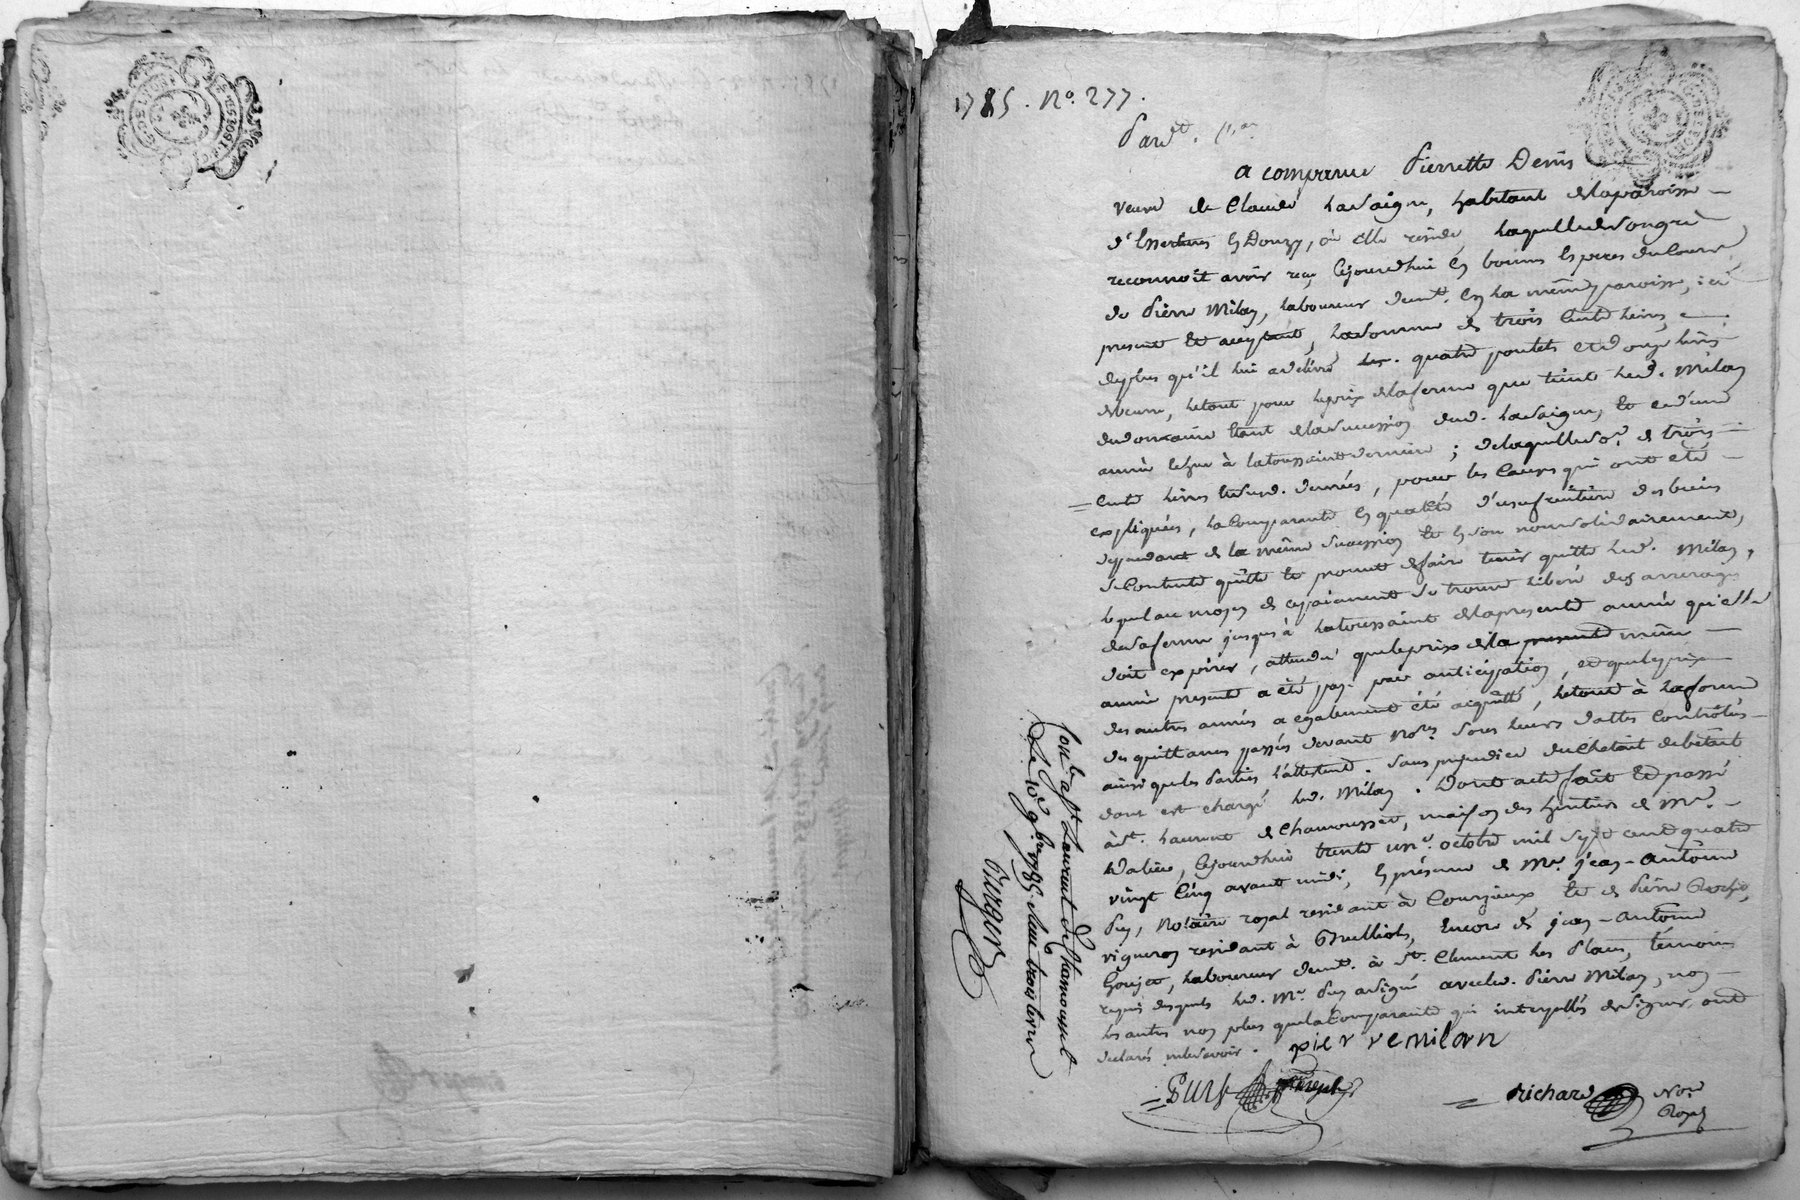 1785. No. 277.
Pard.t
a comparue Pierrette Denis
veuve de Claude Lavaigne, habitant de la paroisse
d'Essertines en Donzy, où elle réside, laquelle de son gré
reconnoit avoir reçu cejourdhui en bonnes especes du cours,
de Pierre Milan, laboureur demt. en la même paroisse, ici
present et acceptant, la somme de trois cents livres,
de plus qu'il lui a délivré quatre poulets et douze livres
de beurre, le tout pour le prix de la ferme que tient led. Milan
du domaine étant de la succession dud. Lavaigne, et ce d'une
année échue à la toussaint derniere; de laquelle so.e de trois
cents livres et susd. denrées, pour les causes qui ont été
expliquées, la comparante en qualité d'usufruitiere des biens
dependant de la même succession et en son nom solidairement,
se contente quitte et promet de faire tenir quitte led. Milan,
lequel au moyen de ce paiement se trouve libéré des arrerages
de sa ferme jusqu'à la toussaint de la presente année qu'elle
doit expirer, attendu que le prix de la presente même
année presente a été payé par anticipation, et que le prix
des autres années a egalement été acquitté, le tout à la forme
des quittances passées devant No.res sous leurs dattes contrôlées
ainsi que les parties l'attestent. Sans prejudice du chetait de bétail
dont est chargé led. Milan. Dont acte fait et passé
à St. Laurent de Chamousset, maison des heritiers de Mr.
cejourdhui trente un.e octobre mil sept cent quatre
vingt cinq avant midi, en présence de Mr. jean-antoine
Puy, Notaire royal residant à Courzieux et de Pierre
vigneron residant à Brulliols, encore de jean-antoine
Goujet, laboureur demt. à St. Clement les Places, témoins
requis desquels led. Mr. Puy a signé avec led. Pierre Milan, non
les autres non plus que la comparante qui interpellés de signer, ont
declaré ne le savoir.
pierre milan
Puy
Richard No.re Royal
Con.lé à St Laurent de Chamousset
Le 10e 9bre 1785. Reçu trois livres